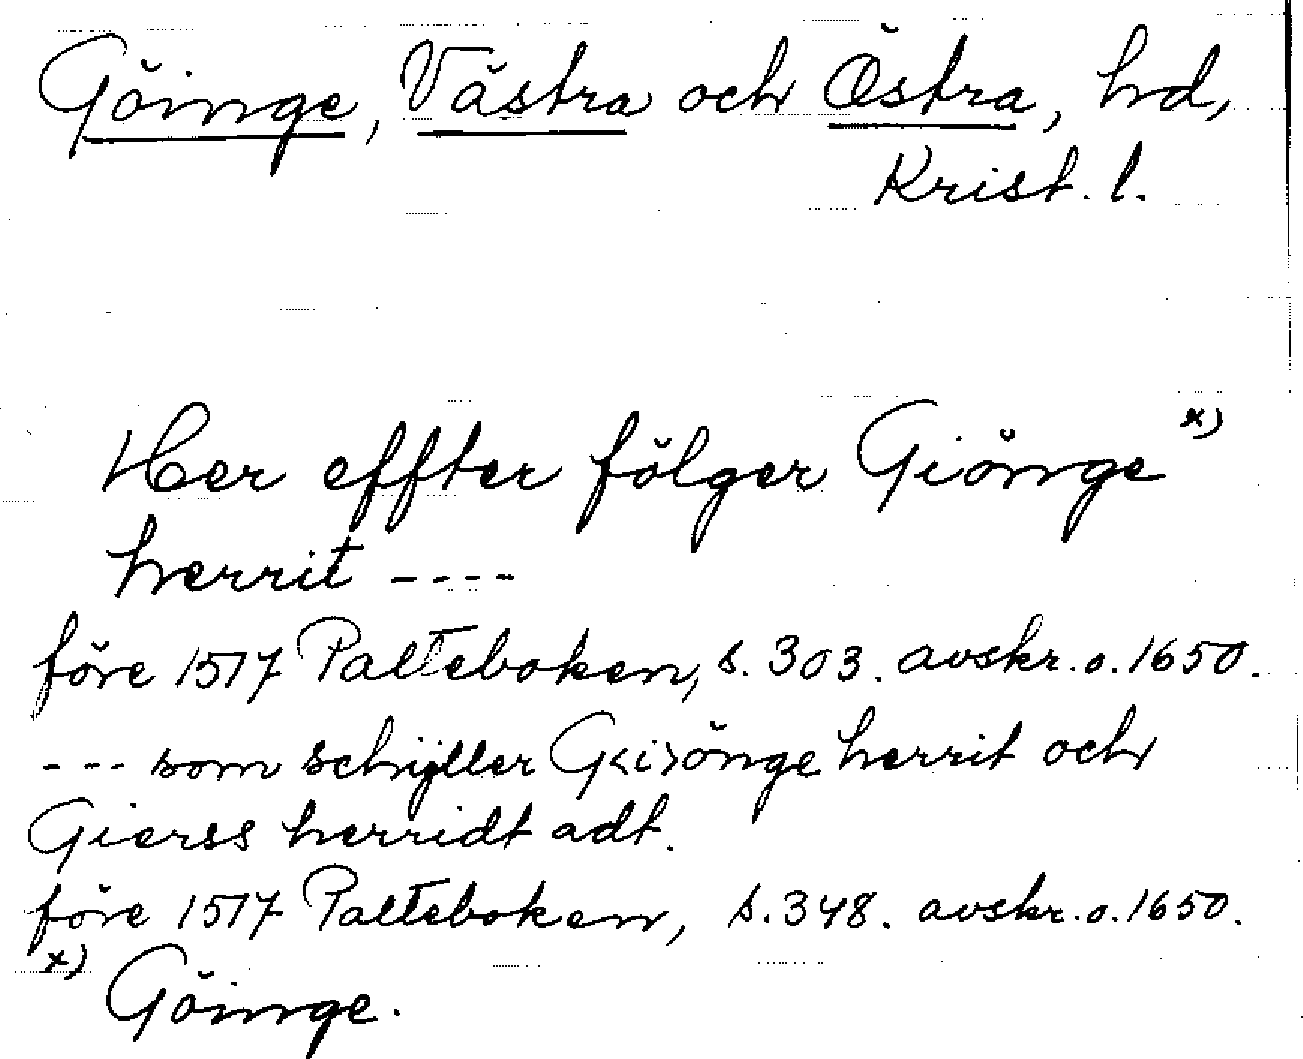 Göinge, Västra och Östra, hd,
Krist. l.
Her effter fölger Giönge x)
herrit ----
före 1517 Palteboken, s. 303. avskr. o. 1650.
--- som schijller G<i>önge herrit och
Gierss herridt adt.
före 1517 Palteboken, s. 348. avskr. o. 1650.
x) Göinge.